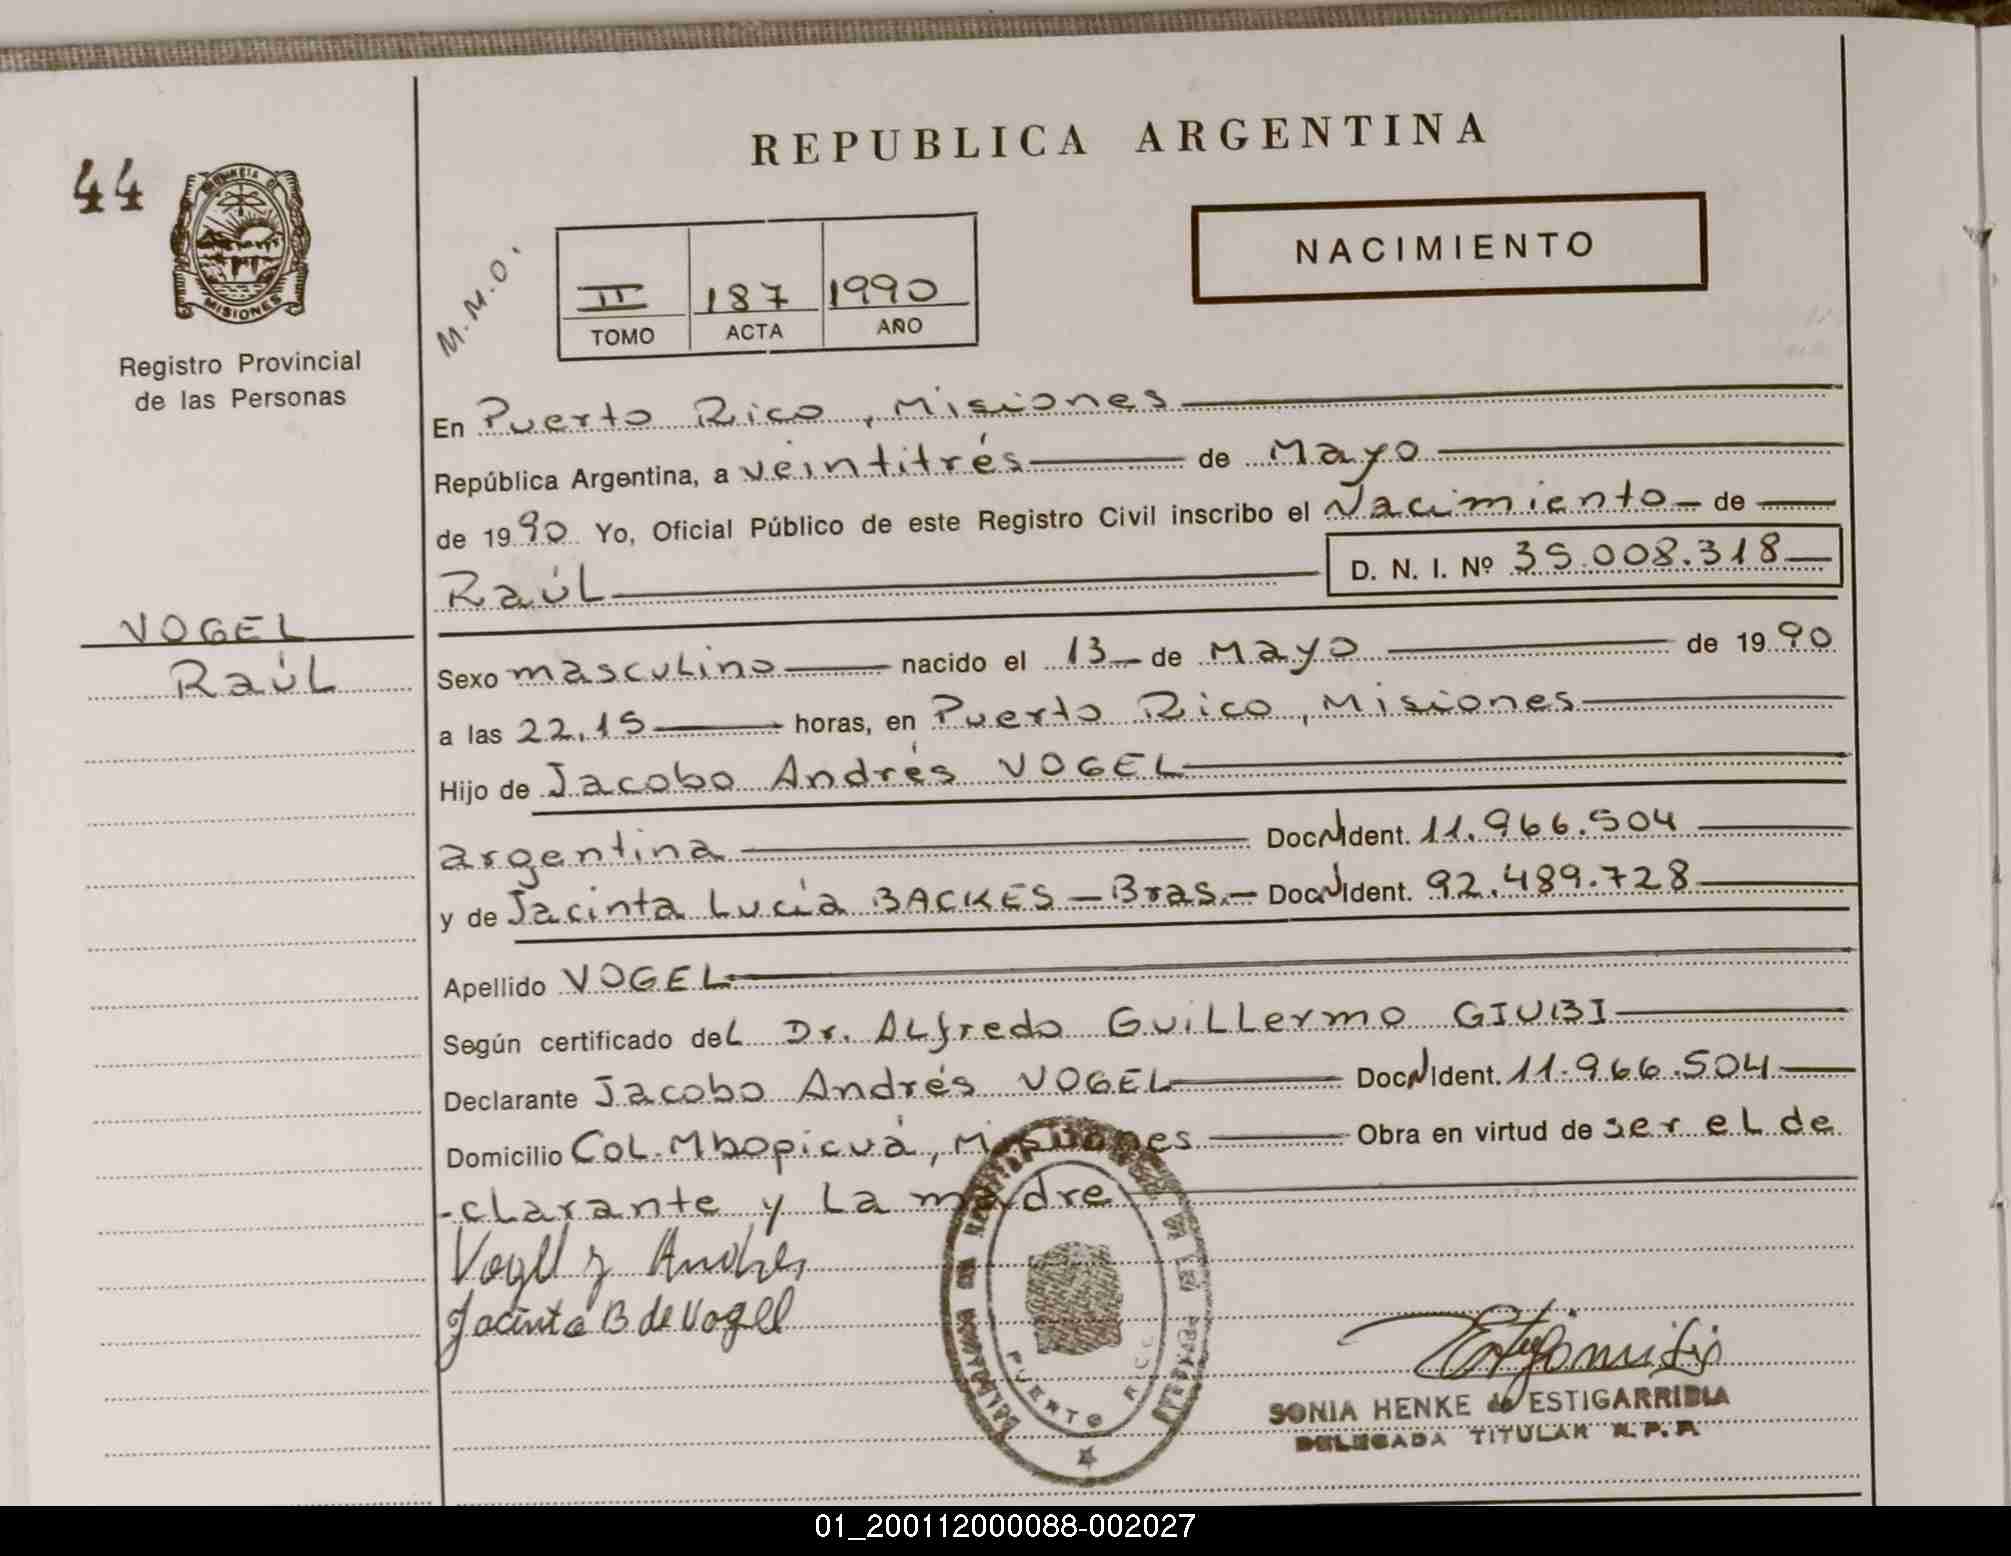 REPUBLICA ARGENTINA
44
PROVINCIA DE
MISIONES
Registro Provincial
de las Personas
M.M.O.
II 187 1990
TOMO ACTA AÑO
NACIMIENTO
En Puerto Rico, Misiones
República Argentina, a veintitrés de Mayo
de 1990 Yo, Oficial Público de este Registro Civil inscribo el Nacimiento de
Raúl D. N. I. Nº 35.008.318
VOGEL
Raúl
Sexo masculino nacido el 13 de Mayo de 1990
a las 22,15 horas, en Puerto Rico, Misiones
Hijo de Jacobo Andrés VOGEL
argentina Doc. N Ident. 11.966.504
y de Jacinta Lucía BACKES - Bras. - Doc. N Ident. 92.489.728
Apellido VOGEL
Según certificado del Dr. Alfredo Guillermo GIUBI
Declarante Jacobo Andrés VOGEL Doc. N Ident. 11.966.504
Domicilio Col. Mbopicuá, Misiones Obra en virtud de ser el de
-clarante y la madre
Vogel J Andres
Jacinta B de Vogel
PUERTO RICO
SONIA HENKE de ESTIGARRIBIA
DELEGADA TITULAR R.P.P.
01_200112000088-002027